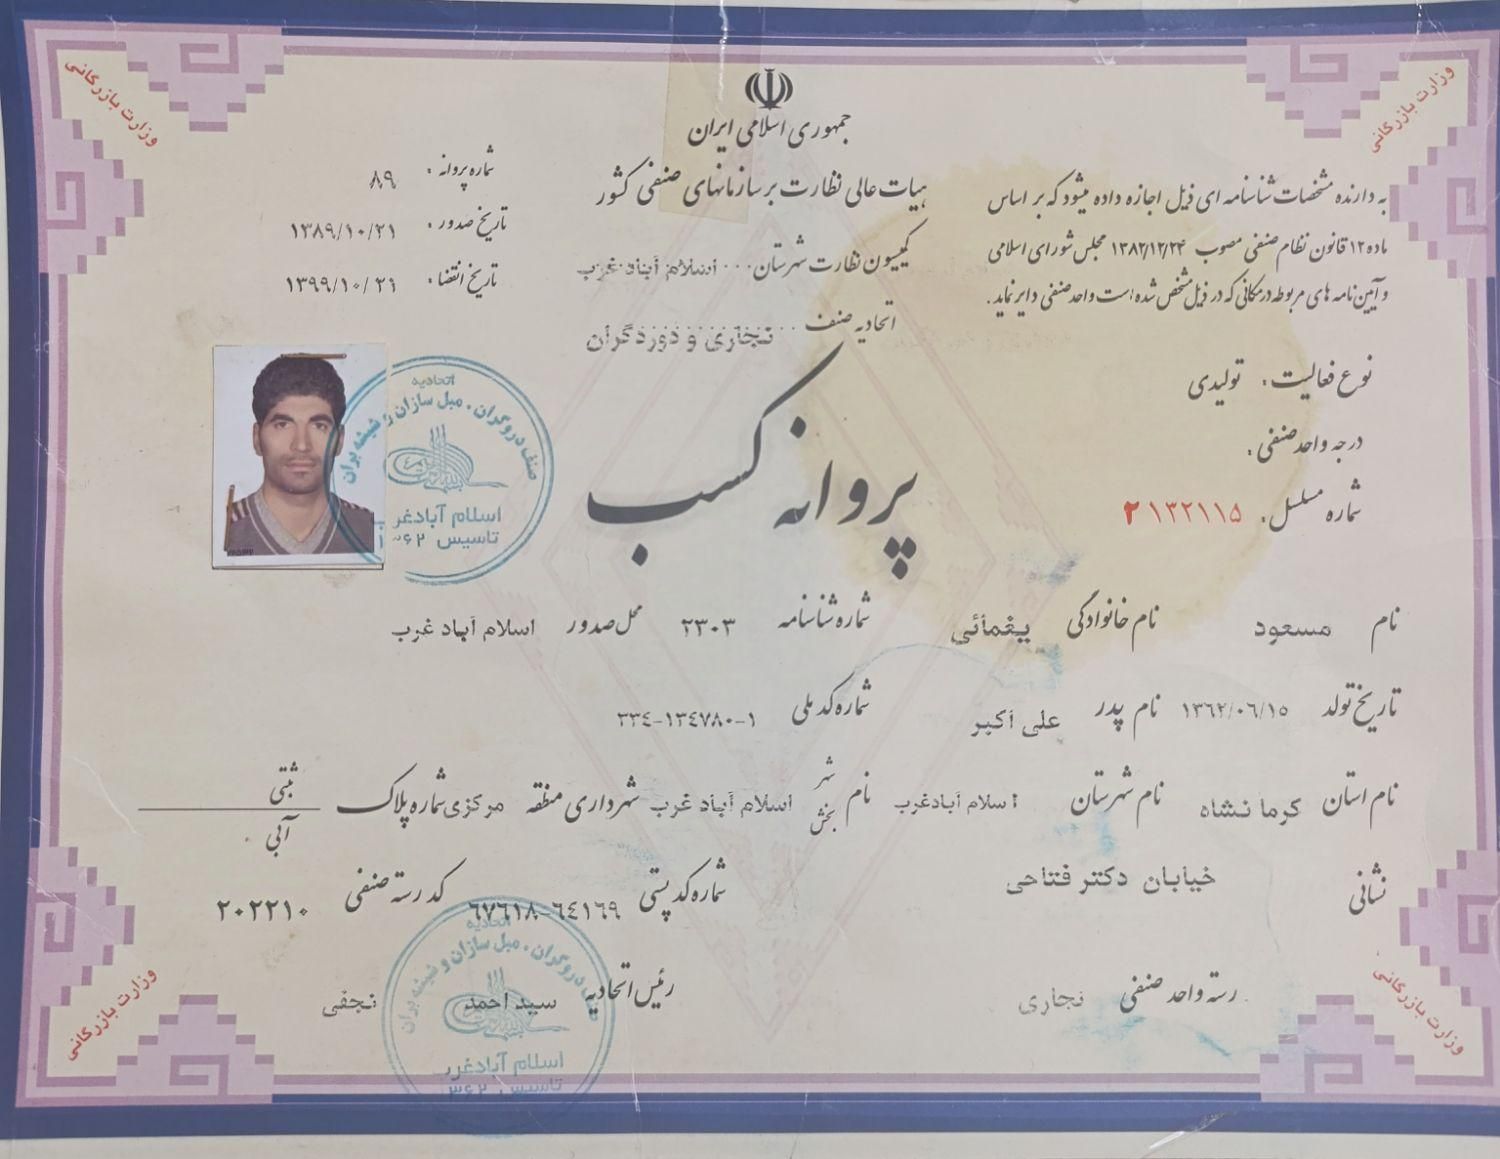 وزارت بازرگانی
وزارت بازرگانی
جمهوری اسلامی ایران
هیات عالی نظارت بر سازمانهای صنفی کشور
کمیسیون نظارت شهرستان... اسلام آباد غرب
اتحادیه صنف ... نجاری و دورد گران
به دارنده مشخصات شناسنامه ای ذیل اجازه داده میشود که بر اساس
ماده ۱۲ قانون نظام صنفی مصوب ۱۳۸۲/۱۲/۲۴ مجلس شورای اسلامی
و آیین نامه های مربوطه در مکانی که در ذیل مشخص شده است واحد صنفی دایر نماید.
شماره پروانه : ۸۹
تاریخ صدور : ۱۳۸۹/۱۰/۲۱
تاریخ انقضا : ۱۳۹۹/۱۰/۲۱
نوع فعالیت : تولیدی
درجه واحد صنفی :
شماره مسلسل : ۲۱۳۲۱۱۵
پروانه کسب
اتحادیه
صنف درودگران . مبل سازان و شیشه بران
اسلام آبادغرب
تاسیس
نام مسعود نام خانوادگی یغمائی شماره شناسنامه ۲۳۰۳ محل صدور اسلام آباد غرب
تاریخ تولد ۱۳۶۲/۰۶/۱۵ نام پدر علی اکبر شماره کد ملی ۳۳۴-۱۳۴۷۸۰-۱
نام استان کرمانشاه نام شهرستان اسلام آبادغرب نام شهر بخش اسلام آباد غرب شهرداری منطقه مرکزی شماره پلاک ثبتی آبی
نشانی خیابان دکتر فتاحی شماره کد پستی ۶۷۶۱۸-۶۴۱۶۹ کد رسته صنفی ۲۰۲۲۱۰
رسته واحد صنفی نجاری رئیس اتحادیه سید احمد نجفی
اتحادیه
صنف درودگران . مبل سازان و شیشه بران
اسلام آبادغرب
تاسیس
وزارت بازرگانی
وزارت بازرگانی